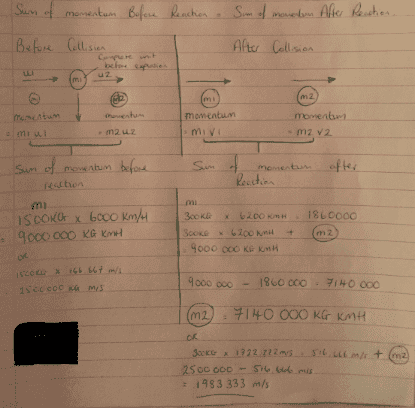 Sum of momentum Before Reaction = Sum of momentum After Reaction
Before Collision
After Collision
Complete unit
before separation
u1
m1
u2
m1
m2
momentum
momentum
momentum
momentum
= m1 u1
= m2 u2
= m1 v1
+ m2 v2
Sum of momentum before
reaction
Sum of momentum after
Reaction
m1
1500KG x 6000 Km/H
= 9000 000 KG KMH
OR
1500KG x 166.667 m/s
2500000 KG m/s
m1
300KG x 6200 KMH = 1860000
300KG x 6200 KMH + m2
= 9000 000 KG KMH
9000 000 - 1860 000 = 7140 000
m2 = 7140 000 KG KMH
OR
300KG x 1722.222 m/s = 516.666 m/s + m2
2500 000 - 516.666 m/s
= 1983 333 m/s